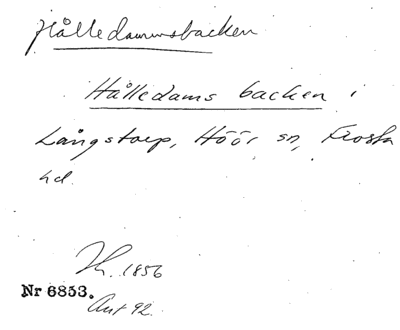 Hålledammsbacken
Hålledams backen i
Långstorp, Höör sn, Frosta
hd.
1856
Nr 6853.
Ant 92.